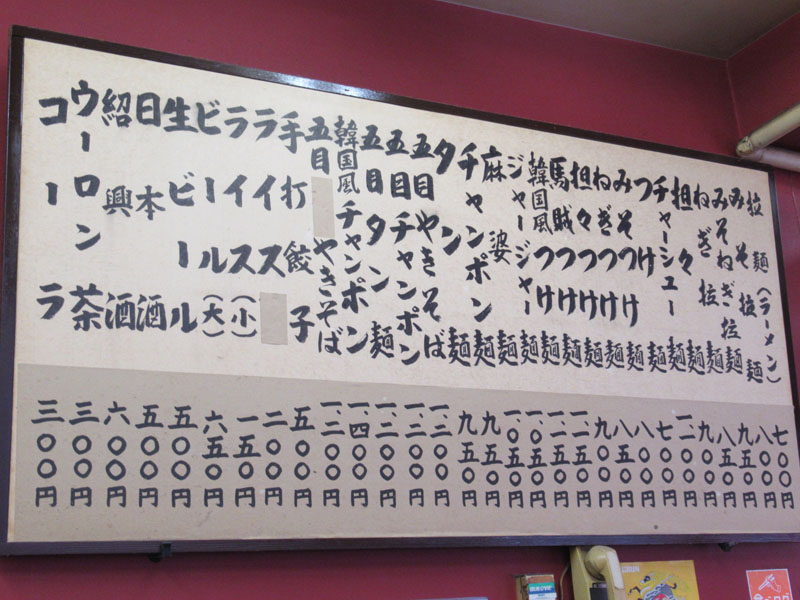 拉麺(ラーメン) 七〇〇円
みそ拉麺 八〇〇円
みそねぎ拉麺 九五〇円
ねぎ拉麺 八五〇円
担々麺 九〇〇円
チャーシュー麺 一、一〇〇円
つけ麺 七〇〇円
みそつけ麺 八〇〇円
ねぎつけ麺 八五〇円
担々つけ麺 九〇〇円
馬賊つけ麺 一、一五〇円
韓国風つけ麺 一、一五〇円
ジャージャー麺 一、〇五〇円
麻婆麺 一、〇五〇円
チャンポン麺 九五〇円
タン麺 九五〇円
五目やきそば 一、二〇〇円
五目チャンポン 一、二〇〇円
五目タン麺 一、二〇〇円
韓国風チャンポン 一、四〇〇円
五目やきそば 一、二〇〇円
手打餃子 五〇〇円
ライス 二〇〇円
ライス(小) 一五〇円
ビール(大) 六五〇円
生ビール 五〇〇円
日本酒 五〇〇円
紹興酒 六〇〇円
ウーロン茶 三〇〇円
コーラ 三〇〇円